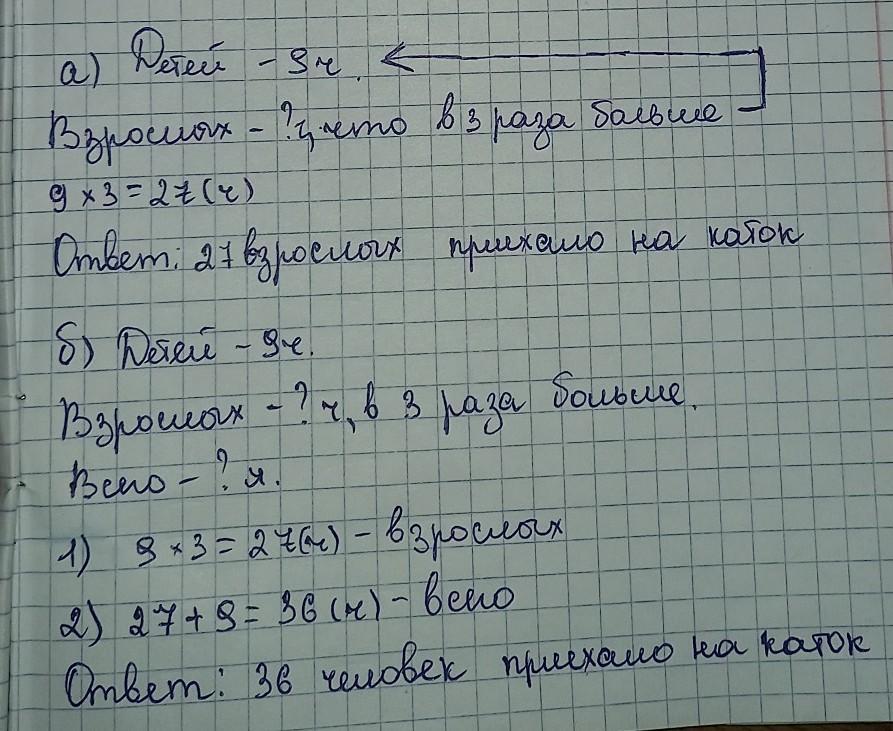 а) Детей - 9ч.
Взрослых - ? ч, что в 3 раза больше
9 × 3 = 27 (ч)
Ответ: 27 взрослых приехало на каток
б) Детей - 9ч.
Взрослых - ? ч, в 3 раза больше.
Всего - ? ч.
1) 9 × 3 = 27(ч) - взрослых
2) 27 + 9 = 36 (ч) - всего
Ответ: 36 человек приехало на каток